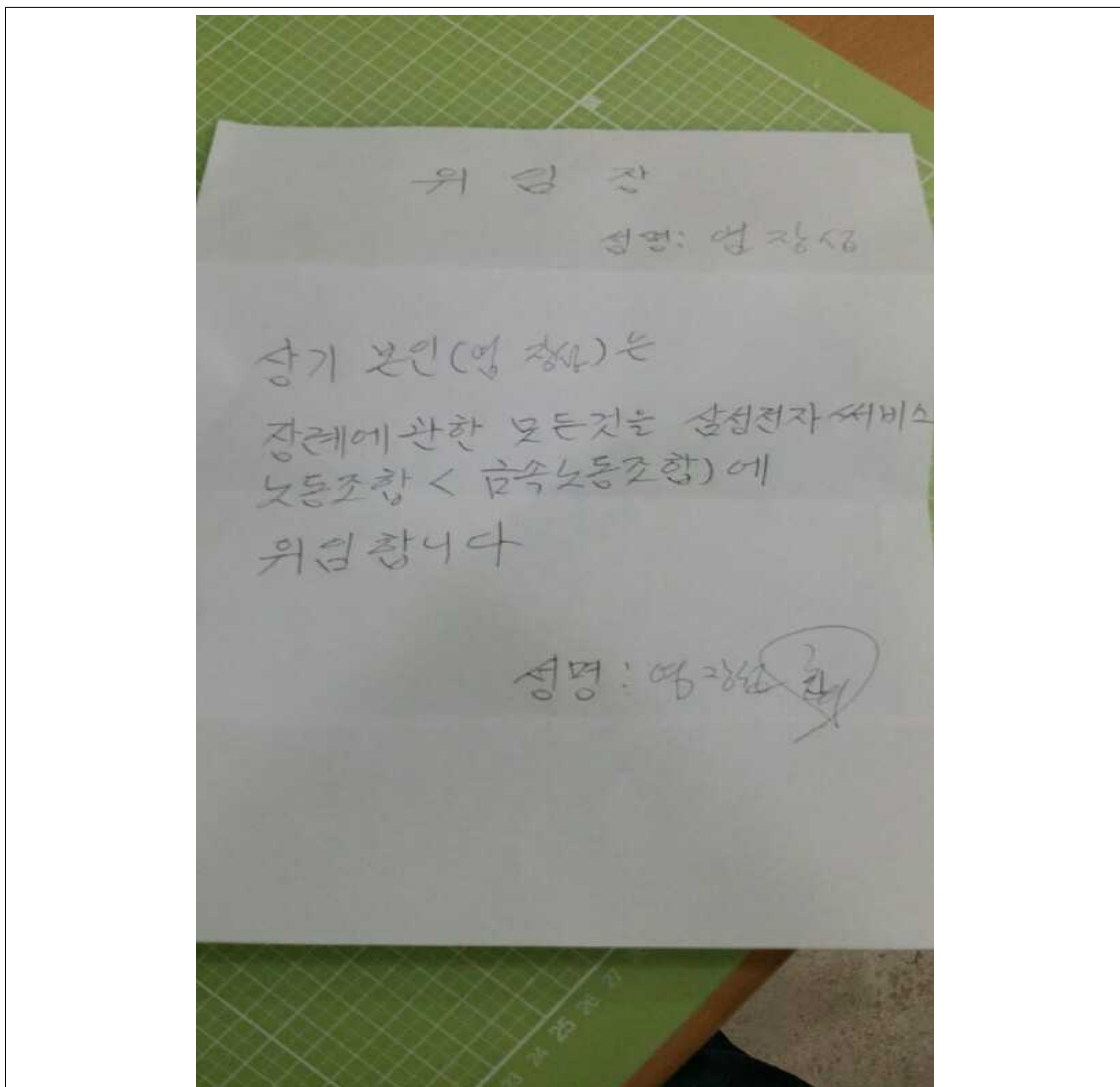 위 임 장
성명: 염장섭
상기 본인(염 장섭)는
장례에 관한 모든것을 삼성전자써비스
노동조합 < 금속노동조합) 에
위임합니다
성명:
23 24 25 26 27